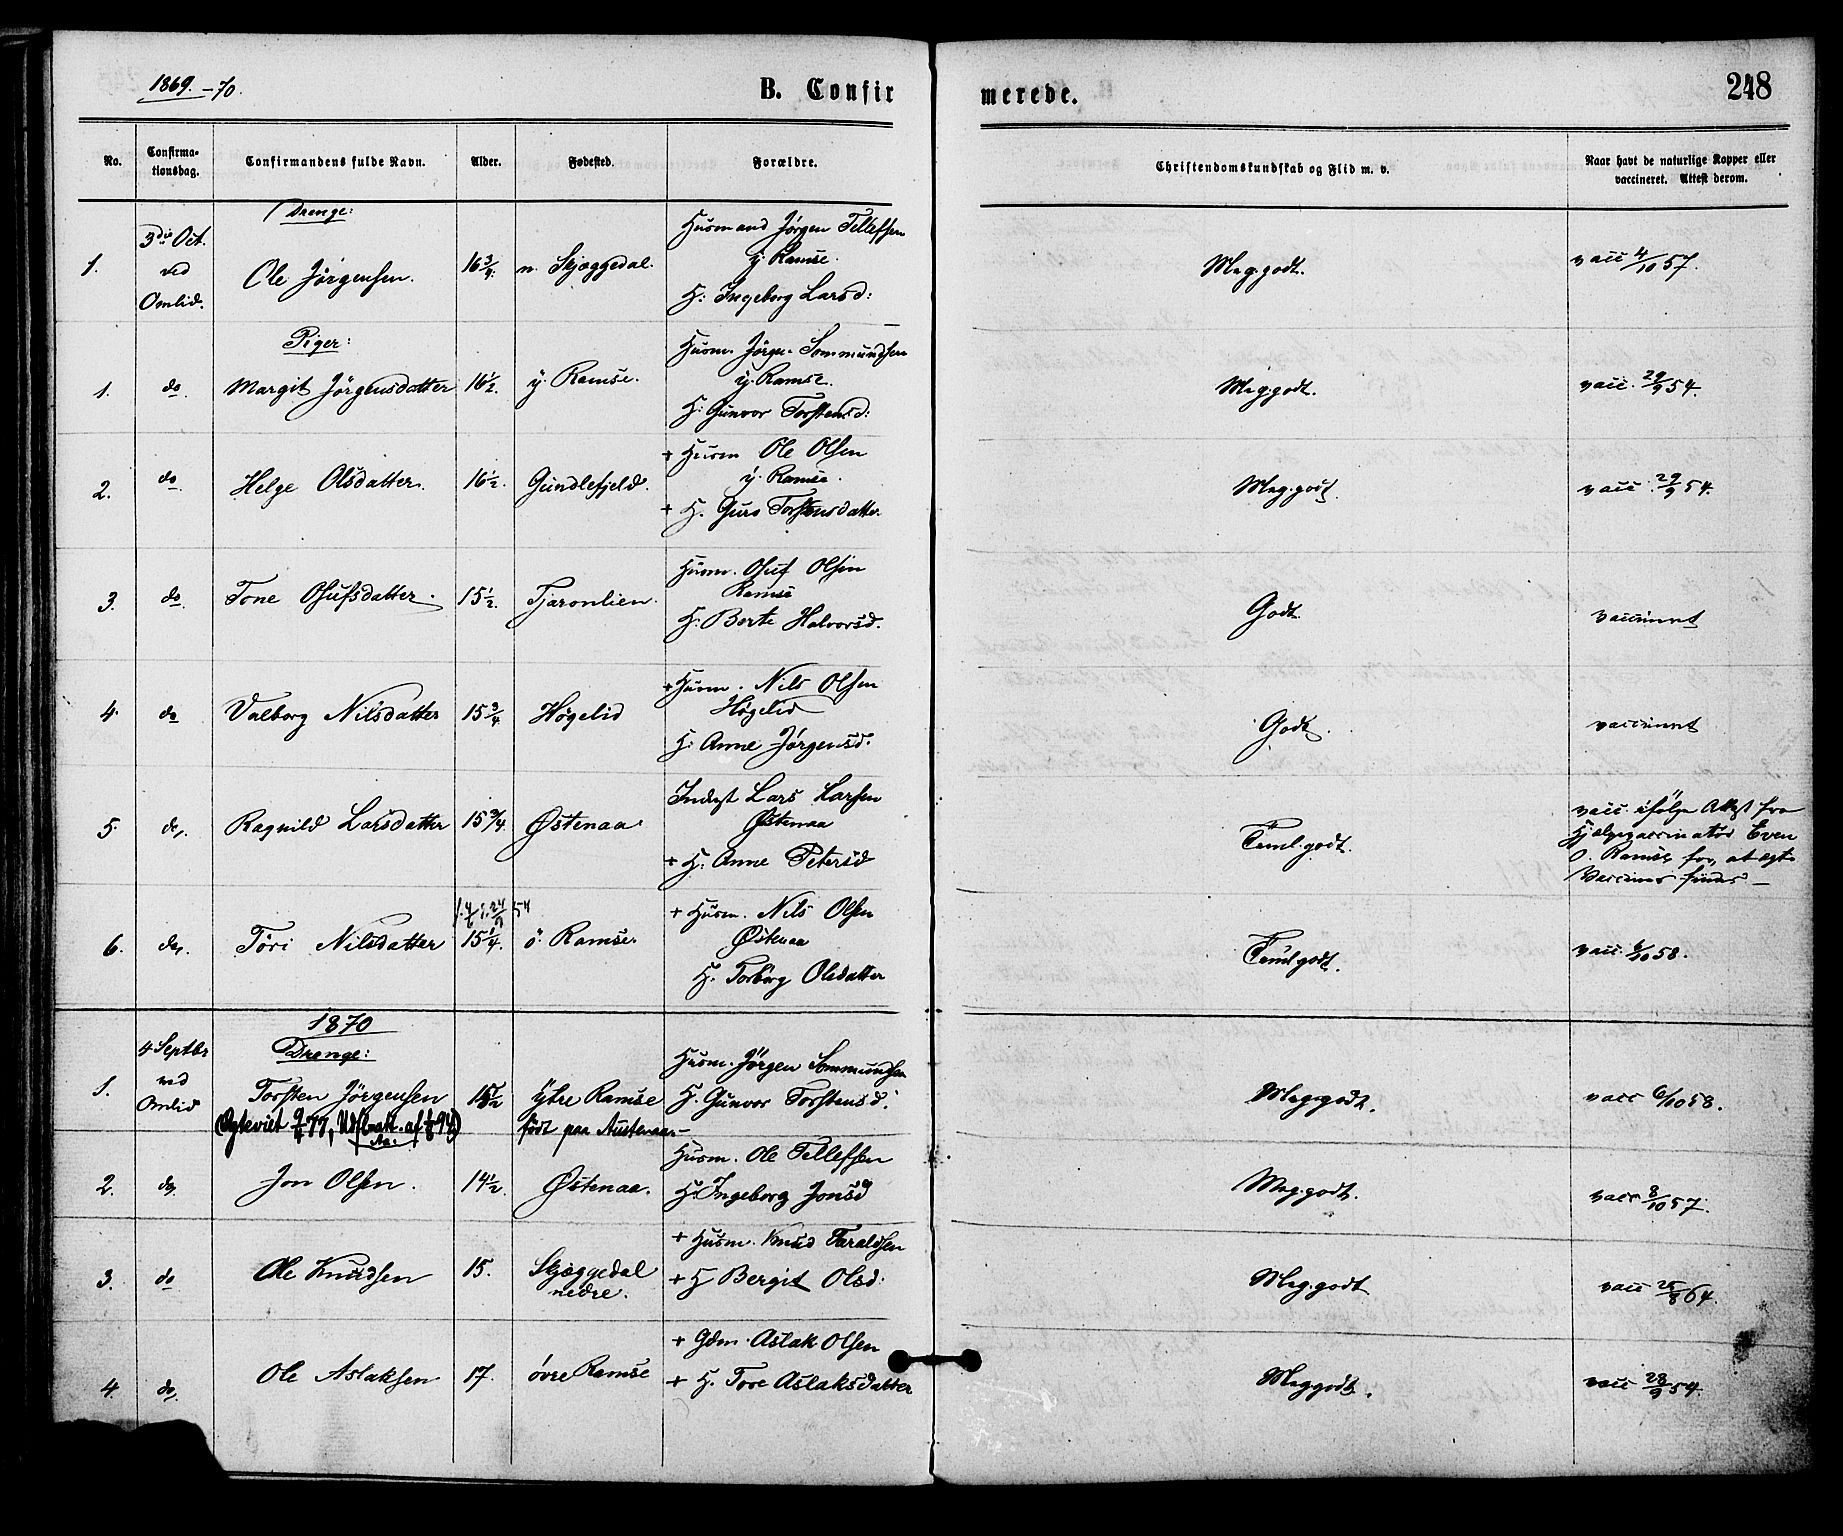 1869.-70.
B. Confirmerede.
248
No. Confirmationsdag. Confirmandens fulde Navn. Alder. Fødested. Forældre. Christendomskundskab og Flid m. v. Naar havt de naturlige Kopper eller vaccineret. Attest derom.
Drenge:
1. 3die Oct. ved Omlid. Ole Jørgensen. 16 3/4. n. Skjeggedal. Husmand Jørgen Tellefsen
y. Ramse.
H: Ingeborg Larsd: Meg. godt. vacc 4/10 57.
Piger:
1. do. Margit Jørgensdatter 16 1/2. y. Ramse. Husm. Jørgen Sommundsen
y. Ramse.
H: Gunvor Torstensd: Meg. godt. vacc. 29/9 54.
2. do. Helge Olsdatter. 16 1/2. Gundlefjeld. + Husm Ole Olsen
y. Ramse.
+ H. Guro Torstensdatter. Meg. godt. vacc. 29/9 54.
3. do. Tone Osufsdatter. 15 1/2. Tjaronlien. Husm. Osuf Olsen
Ramse
H: Berte Halvorsd. Godt. vaccineret
4. do Valborg Nilsdatter 15 3/4. Høgelid + Husm. Nils Olsen
Høgelid
H: Anne Jørgensd. Godt. vaccineret
5. do. Ragnild Larsdatter 15 3/4. Østenaa. Inderst Lars Larsen
Østenaa
+ H. Anne Petersd Teml. godt. vacc. ifølge Attest fra
Hjælpevaccinatør Even
O. Ramse for, at ægte
Vacciner findes —
6. do. Tøri Nilsdatter 15 1/4. ö. Ramse. + Husm. Nils Olsen
Østenaa
H. Torborg Olsdatter Teml godt. vacc. 6/10 58.
1870
Drenge:
1. 4 Septbr ved Omlid Torsten Jørgensen 15 1/2 Ytre Ramse Husm. Jørgen Sommundsen
født paa Austenaa— H. Gunvor Torstensd. Meg. godt. vacc 6/10 58.
2. do. Jon Olsen. 14 1/2. Østenaa. Husm. Ole Tellefsen
H. Ingeborg Jonsd Meg. godt. vacc 8/10 57.
3. do Ole Knudsen 15. Skjeggedal nedre. + Husm. Knud Taraldsen
+ H Bergit Olsd: Meg. godt vacc 25/8 64.
4. do. Ole Aslaksen 17. övre Ramse + Gdm. Aslak Olsen
+ H. Tore Aslaksdatter Meg godt. vacc 28/9 54.